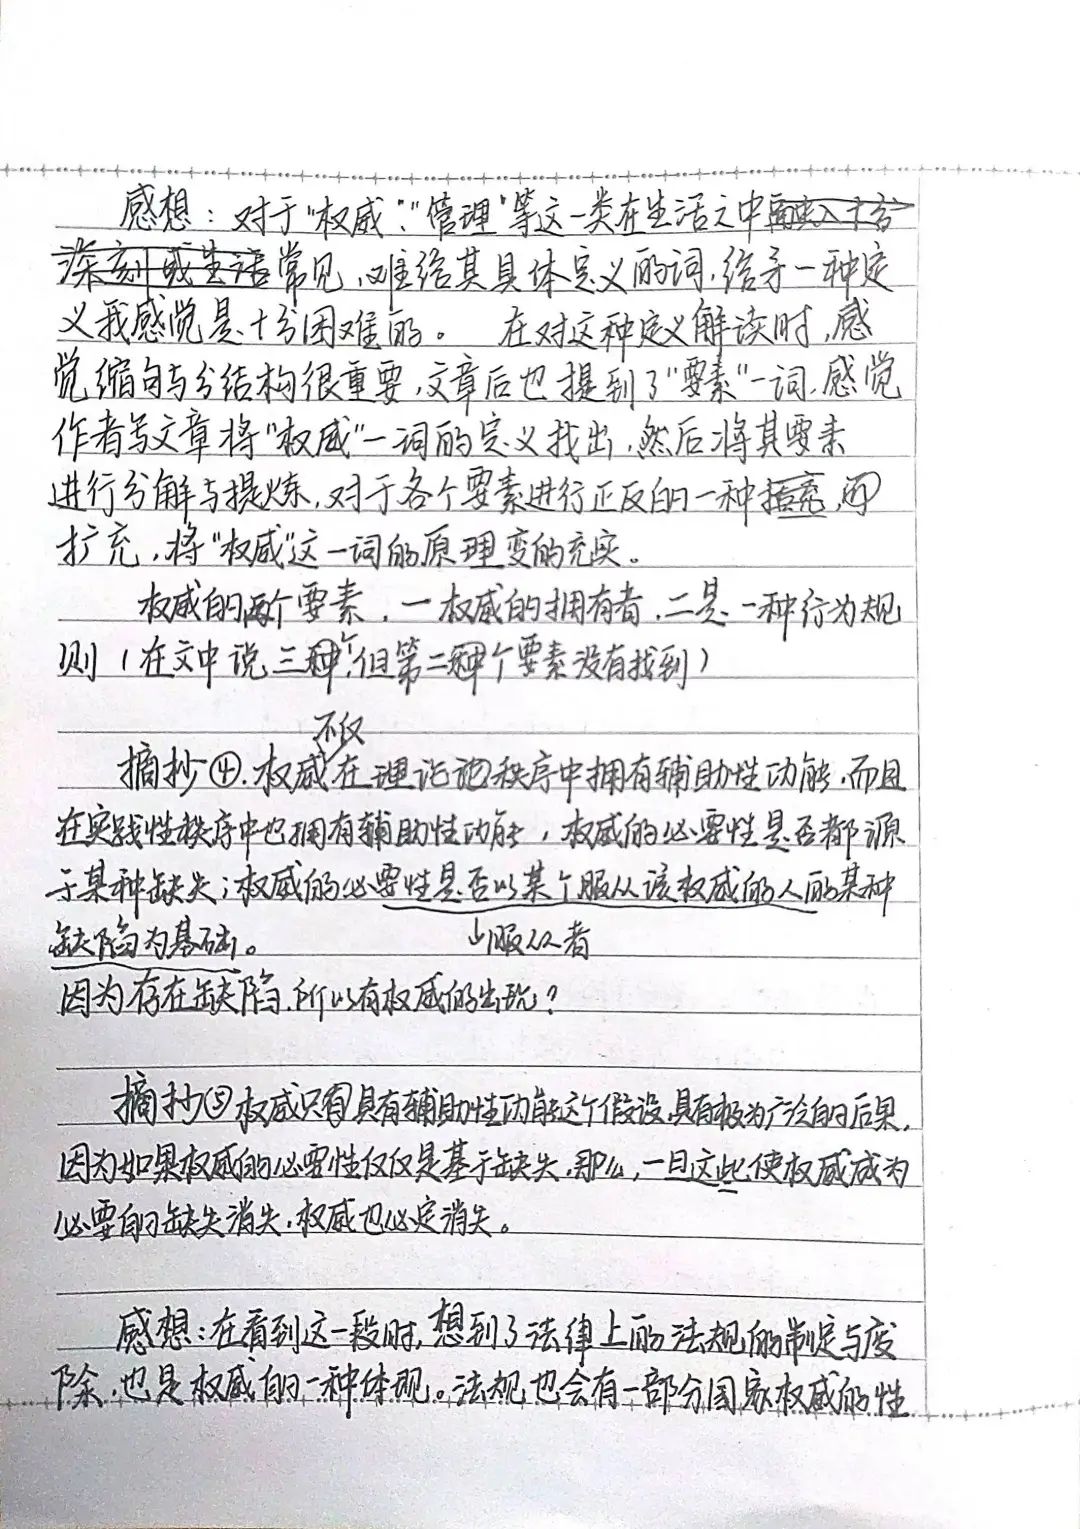 感想：对于"权威"."管理"等这一类在生活之中
深刻或生活常见,难给其具体定义的词,给予一种定
义我感觉是十分困难的。 在对这种定义解读时,感
觉缩句与分结构很重要,文章后也提到了"要素"一词,感觉
作者写文章将"权威"一词的定义找出,然后将其要素
进行分解与提炼,对于各个要素进行正反的一种
扩充,将"权威"这一词的原理变的充实。
权威的两个要素,一权威的拥有者,二是一种行为规
则(在文中说三个,但第二个要素没有找到)
不仅
摘抄④.权威在理论池秩序中拥有辅助性功能,而且
在实践性秩序中也拥有辅助性功能,权威的必要性是否都源
于某种缺失;权威的必要性是否以某个服从该权威的人的某种
缺陷为基础。 ↓服从者
因为存在缺陷,所以有权威的出现?
摘抄⑤权威只有具有辅助性功能这个假设,具有极为广泛的后果,
因为如果权威的必要性仅仅是基于缺失,那么,一旦这些使权威成为
必要的缺失消失,权威也必定消失。
感想:在看到这一段时,想到了法律上的法规的制定与废
除,也是权威的一种体现。法规也会有一部分国家权威的性